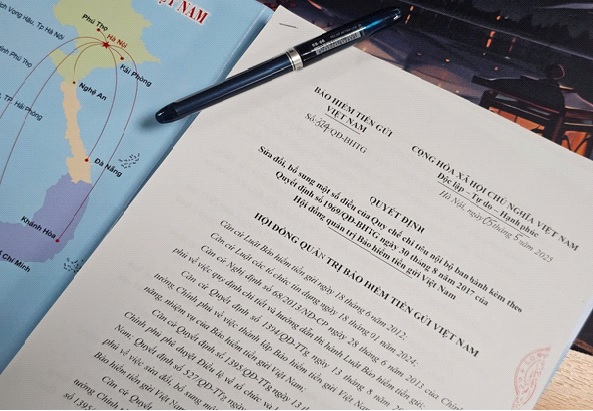 T NAM
ịch Vọng Hậu, Tp Hà Nội
Phú Thọ
Hà Nội
ỉnh Phú Thọ
Hải Phòng
Nghệ An
TP. Hải Phòng
Đà Nẵng
Khánh Hòa
ồ Chí Minh
BẢO HIỂM TIỀN GỬI
VIỆT NAM
Số: 324/QĐ-BHTG
CỘNG HÒA XÃ HỘI CHỦ NGHĨA VIỆT NAM
Độc lập – Tự do – Hạnh phúc
Hà Nội, ngày 05 tháng 5 năm 2025
QUYẾT ĐỊNH
Sửa đổi, bổ sung một số điều của Quy chế chi tiêu nội bộ ban hành kèm theo
Quyết định số 1969/QĐ-BHTG ngày 30 tháng 8 năm 2017 của
Hội đồng quản trị Bảo hiểm tiền gửi Việt Nam
HỘI ĐỒNG QUẢN TRỊ BẢO HIỂM TIỀN GỬI VIỆT NAM
Căn cứ Luật Bảo hiểm tiền gửi ngày 18 tháng 6 năm 2012;
Căn cứ Luật các tổ chức tín dụng ngày 18 tháng 01 năm 2024;
Căn cứ Nghị định số 68/2013/NĐ-CP ngày 28 tháng 6 năm 2013 của Chính
phủ về việc quy định chi tiết và hướng dẫn thi hành Luật Bảo hiểm tiền gửi;
Căn cứ Quyết định số 1394/QĐ-TTg ngày 13 tháng 8 năm 20
tướng Chính phủ về việc thành lập Bảo hiểm tiền gửi Việt Nam
năng, nhiệm vụ của Bảo hiểm tiền gửi Việt Nam;
Căn cứ Quyết định số 1395/QĐ-TTg ngày 13 t
Chính phủ phê duyệt Điều lệ về tổ chức và h
Nam, Quyết định số 527/QĐ-TTg
phủ về việc sửa đổi, bổ sung một
Bảo hiểm tiền gửi Việt Nam
Căn cứ Quyết
tướng Chính ph
số 1395